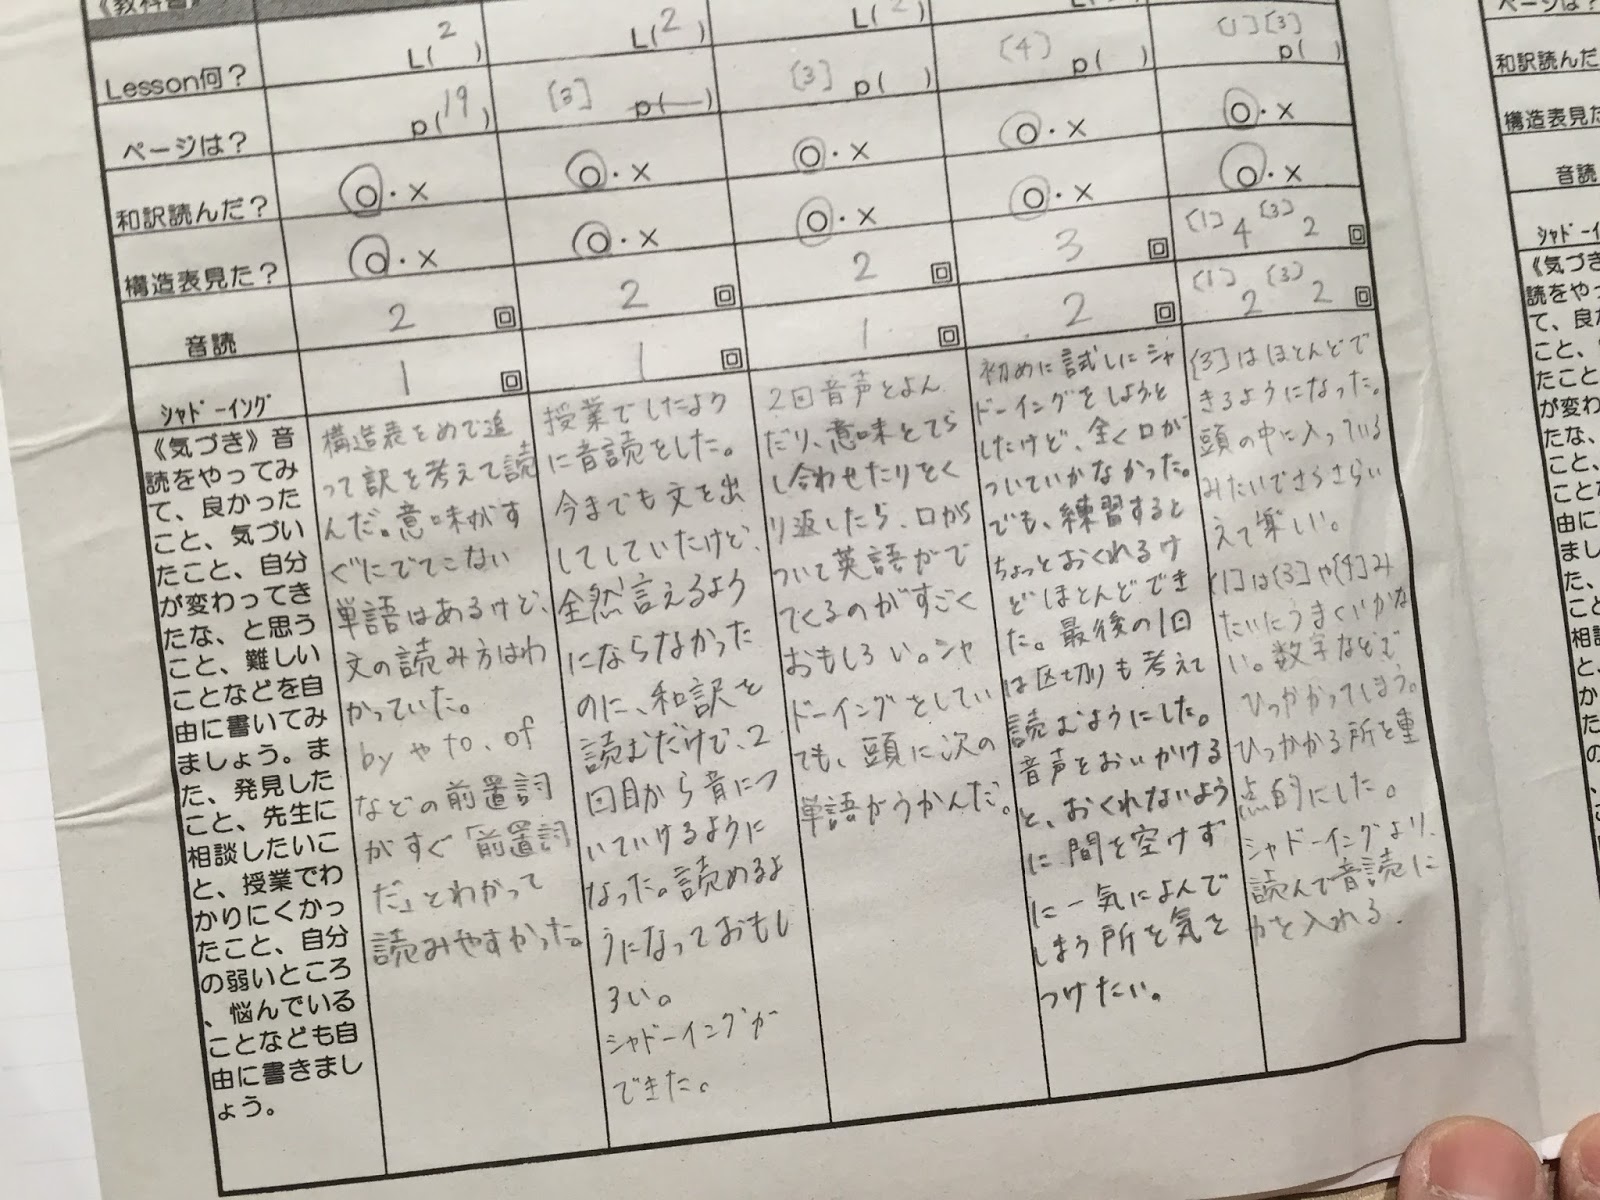 《教科書》
Lesson何？
L( 2 )
L( 2 )
L( 2 )
ページは？
p( 19 )
[3] p( )
[3] p( )
[4] p( )
[1] [3] p( )
和訳読んだ？
○・×
○・×
○・×
○・×
○・×
構造表見た？
○・×
○・×
○・×
○・×
○・×
音読
2回
2回
2回
3回
[1]4 [3]2回
シャドーイング
1回
1回
1回
2回
[1]2 [3]2回
《気づき》音
読をやってみ
て、良かった
こと、気づい
たこと、自分
が変わってき
たな、と思う
こと、難しい
ことなどを自
由に書いてみ
ましょう。ま
た、発見した
こと、先生に
相談したいこ
と、授業でわ
かりにくかっ
たこと、自分
の弱いところ
、悩んでいる
ことなども自
由に書きまし
ょう。
構造表をめで追
って訳を考えて読
んだ。意味がす
ぐにでてこない
単語はあるけど、
文の読み方はわ
かっていた。
byやto、of
などの前置詞
がすぐ「前置詞
だ」とわかって
読みやすかった。
授業でしたよう
に音読をした。
今までも文を出
してしていたけど、
全然言えるよう
にならなかった
のに、和訳を
読むだけで、2
回目から音につ
いていけるように
なった。読めるよ
うになっておもし
ろい。
シャドーイングが
できた。
2回音声とよん
だり、意味とてら
し合わせたりをく
り返したら、口から
ついて英語がで
てくるのがすごく
おもしろい。シャ
ドーイングをしてい
ても、頭に次の
単語がうかんだ。
初めに試しにシャ
ドーイングをしようと
したけど、全く口が
ついていかなかった。
でも、練習すると
ちょっとおくれるけ
どほとんどでき
た。最後の1回
は区切りも考えて
読むようにした。
音声をおいかける
と、おくれないよう
に間を空けず
に一気によんで
しまう所を気を
つけたい。
[3]はほとんどで
きるようになった。
頭の中に入っている
みたいでさらさらい
えて楽しい。
[1]は[3]や[4]み
たいにうまくいかな
い。数字などで
ひっかかってしまう。
ひっかかる所を重
点的にした。
シャドーイングより、
読んで音読に
力を入れる。
ページは？
和訳読んだ
構造表見た
音読
シャドーイ
《気づき
読をやっ
て、良か
こと、
たこと
が変わ
たな、
こと、
ことな
ましょ
た、
こと
相談